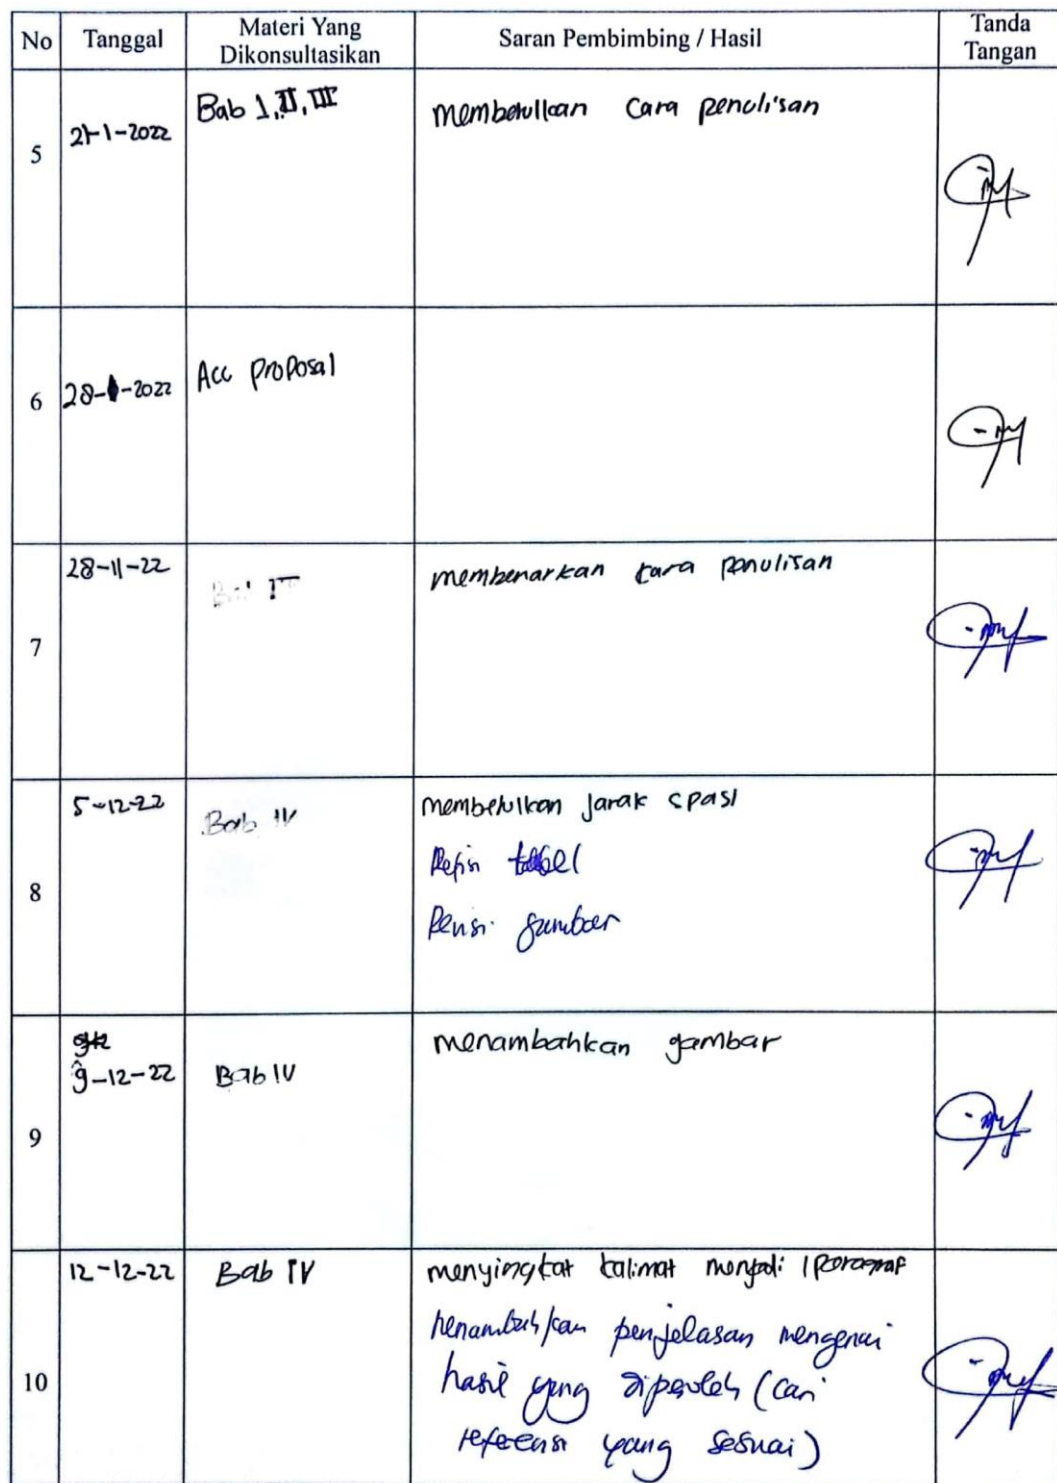 No Tanggal Materi Yang Dikonsultasikan Saran Pembimbing / Hasil Tanda Tangan
5 21-1-2022 Bab I, II, III membetulkan cara penulisan
6 28-1-2022 Acc proposal
7 28-11-22 membenarkan cara penulisan
8 5-12-22 Bab IV membetulkan Jarak spasi
Refisi tabel
Revisi gambar
9 9-12-22 Bab IV menambahkan gambar
10 12-12-22 Bab IV menyingkat kalimat menjadi 1 paragraf
menambahkan penjelasan mengenai
hasil yang diperoleh (cari
referensi yang sesuai)